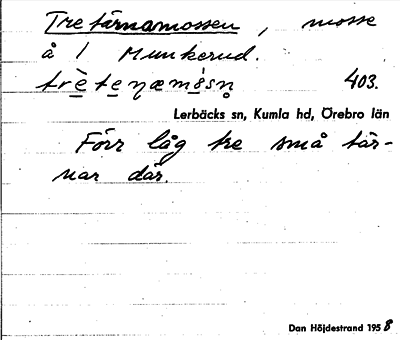 Tretärnamossen, mosse
å 1 Munkerud.
403.
Lerbäcks sn, Kumla hd, Örebro län
Förr låg tre små tär-
nar där.
Dan Höjdestrand 1958